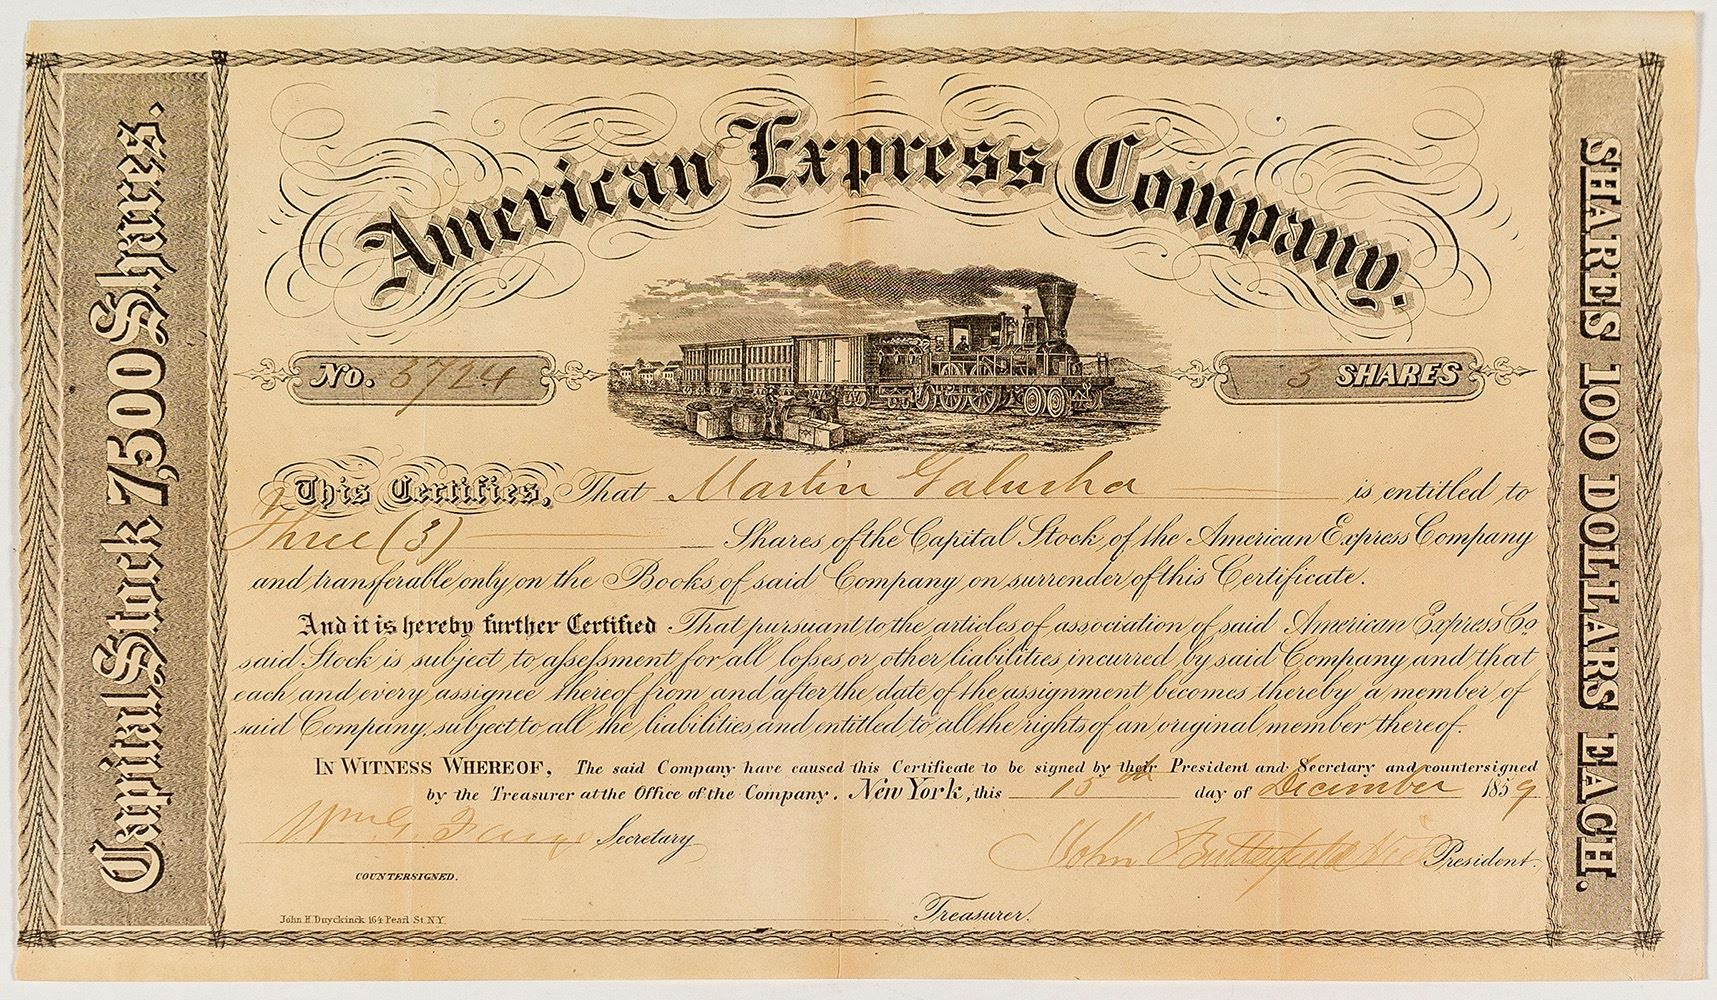 American Express Company.
Capital Stock 7,500 Shares.
SHARES 100 DOLLARS EACH.
No. 3724
3 SHARES
This Certifies, That Martin Galusha is entitled to
Three (3) Shares of the Capital Stock of the American Express Company
and transferable only on the Books of said Company on surrender of this Certificate.
And it is hereby further Certified That pursuant to the articles of association of said American Express Co
said Stock is subject to assessment for all losses or other liabilities incurred by said Company and that
each and every assignee thereof from and after the date of the assignment becomes thereby a member of
said Company, subject to all the liabilities and entitled to all the rights of an original member thereof.
IN WITNESS WHEREOF, The said Company have caused this Certificate to be signed by their President and Secretary and countersigned
by the Treasurer at the Office of the Company. New York, this 15th day of December 1859
Wm G. Fargo Secretary
John Butterfield Vice President.
COUNTERSIGNED.
John H. Duyckinck 164 Pearl St. N.Y.
Treasurer.